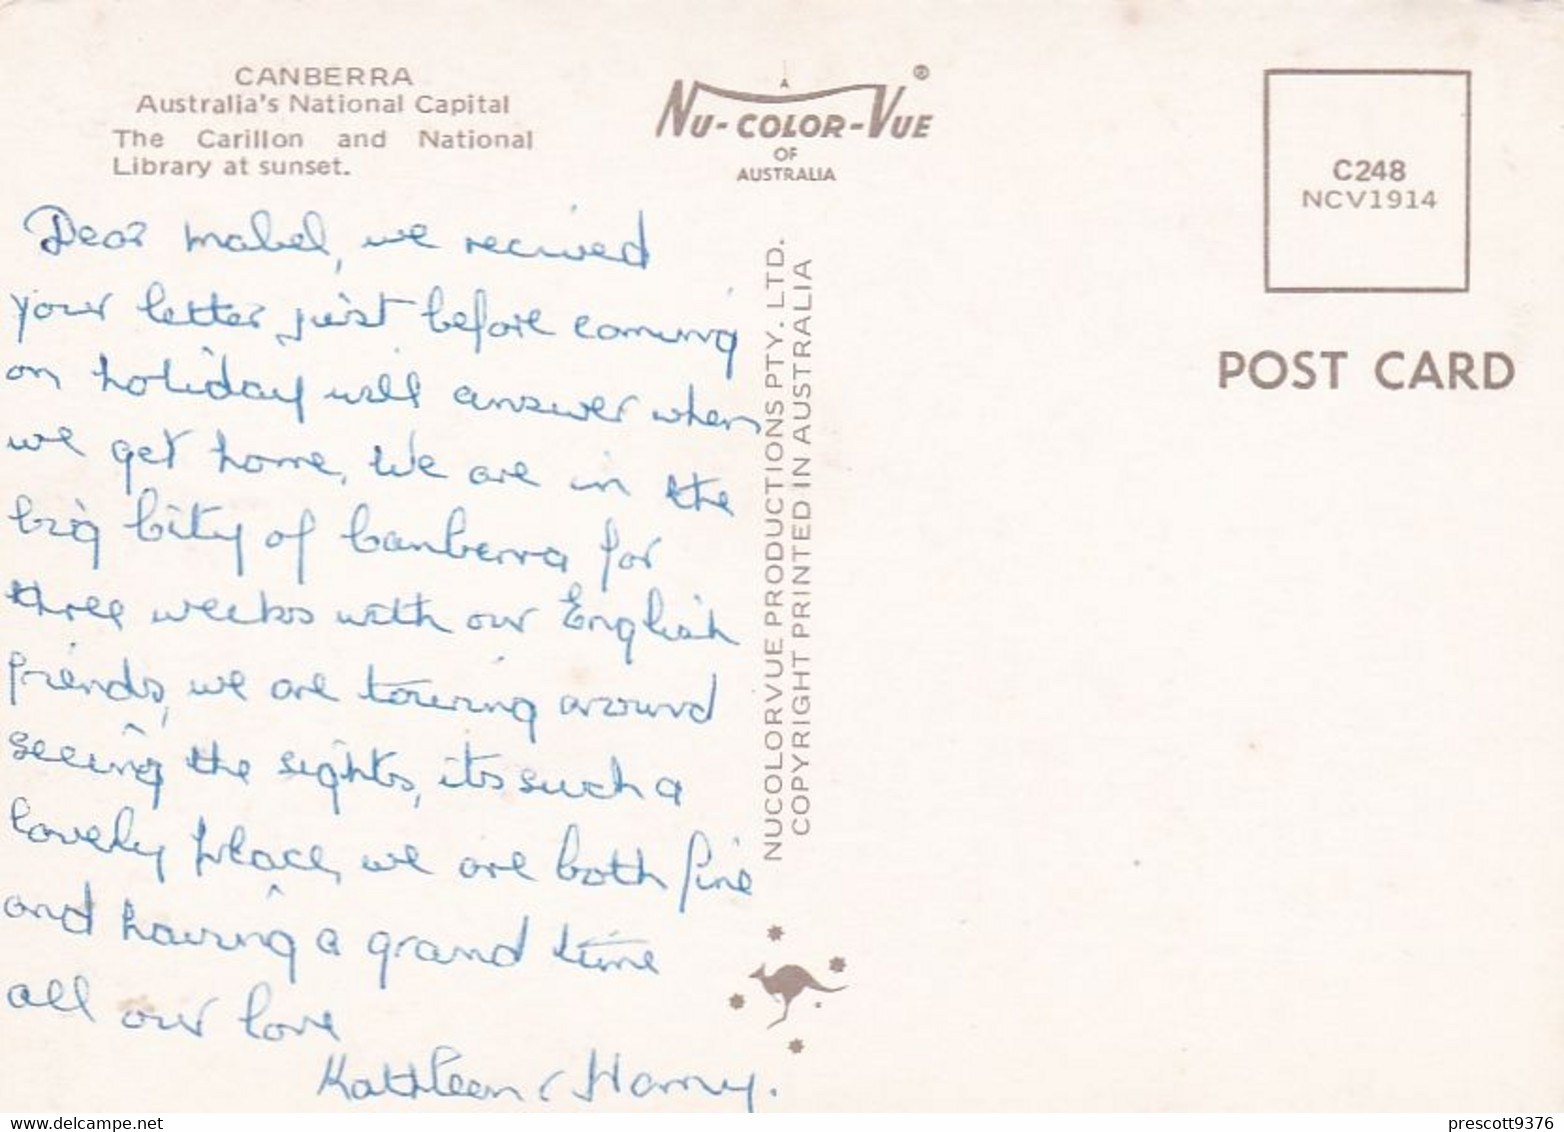 CANBERRA
Australia's National Capital
The Carillon and National
Library at sunset.
A
NU-COLOR-VUE ®
OF
AUSTRALIA
C248
NCV1914
POST CARD
Dear Mabel, we recived
your letter just before coming
on holiday will answer when
we get home, We are in the
big City of Canberra for
three weeks with our English
friends, we are touring around
seeing the sights, its such a
lovely place, we are both fine
and having a grand time
all our love
Kathleen & Harry.
NUCOLORVUE PRODUCTIONS PTY. LTD.
COPYRIGHT PRINTED IN AUSTRALIA
www.delcampe.net
prescott9376